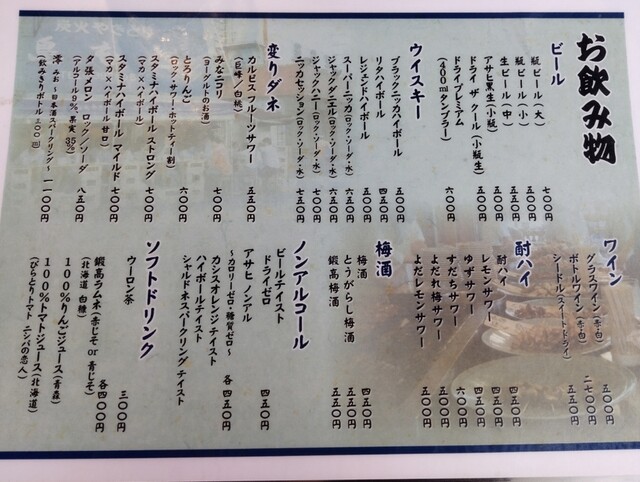 お飲み物
ビール
瓶ビール（大） 七〇〇円
瓶ビール（小） 五五〇円
生ビール（中） 五五〇円
アサヒ黒生（小瓶） 五五〇円
ドライ ザ クール（小瓶生） 五〇〇円
ドライプレミアム
（400mlタンブラー） 六〇〇円
ウイスキー
ブラックニッカハイボール 五〇〇円
リタハイボール 四五〇円
レジェンドハイボール 五〇〇円
スーパーニッカ（ロック・ソーダ・水） 六五〇円
ジャックダニエル（ロック・ソーダ・水） 六五〇円
ジャックハニー（ロック・ソーダ・水） 六〇〇円
ニッカセッション（ロック・ソーダ・水） 七五〇円
変りダネ
カルピスフルーツサワー
（巨峰／白桃） 五五〇円
みなニコリ
（ヨーグルトのお酒） 七〇〇円
とろりんご
（ロック・サワー・ホットティー割） 六〇〇円
スタミナハイボール ストロング
（マカ×ハイボール） 七〇〇円
スタミナハイボール マイルド
（マカ×ハイボール 甘口） 七〇〇円
夕張メロン ロック／ソーダ
（アルコール9％ 果実35％） 八五〇円
澪 みお 〜日本酒スパークリング〜
（飲みきりボトル 300㎖） 一一〇〇円
ワイン
グラスワイン（赤・白） 五〇〇円
ボトルワイン（赤・白） 二七〇〇円
シードル（スイート・ドライ） 五〇〇円
酎ハイ
酎ハイ 四五〇円
レモンサワー 四五〇円
ゆずサワー 四五〇円
すだちサワー 六〇〇円
よだれ梅サワー 五〇〇円
よだレモンサワー 五〇〇円
梅酒
梅酒 四五〇円
とうがらし梅酒 五五〇円
鍛高梅酒 五五〇円
ノンアルコール
ビールテイスト
ドライゼロ 四五〇円
アサヒ ノンアル
〜カロリーゼロ・糖質ゼロ〜 各 四五〇円
カシスオレンジ テイスト
ハイボールテイスト
シャルドネスパークリング テイスト
ソフトドリンク
ウーロン茶 三〇〇円
鍛高ラムネ（赤じそ or 青じそ）
（北海道 白糠） 各四〇〇円
100％りんごジュース（青森） 五〇〇円
100％トマトジュース（北海道）
（びらとりトマト ニシパの恋人） 五〇〇円